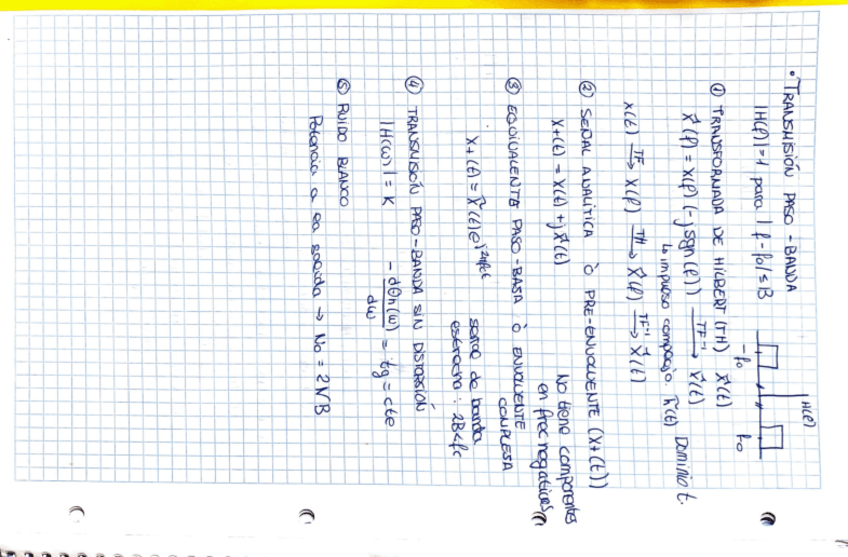 • TRANSMISIÓN PASO-BANDA
|H(f)| = 1 para |f - f0| ≤ B
H(f)
-f0 f0
① TRANSFORMADA DE HILBERT (TH) x̂(t)
x̂(f) = X(f) (-j sgn(f)) TF⁻¹→ x̂(t)
↳ impulso complejo. ĥ(t) Dominio t.
x(t) TF→ X(f) TH→ x̂(f) TF⁻¹→ x̂(t)
② SEÑAL ANALÍTICA Ó PRE-ENVOLVENTE (x+(t))
x+(t) = x(t) + j x̂(t)
No tiene componentes
en frec negativas
③ EQUIVALENTE PASO-BASA Ó ENVOLVENTE
COMPLESA
x+(t) = x̃(t) e^j2πfct
señal de banda
estrecha: 2B<fc
④ TRANSMISIÓN PASO-BANDA SIN DISTORSIÓN
|H(ω)| = K
- dθh(ω)/dω = tg = cte
⑤ RUIDO BLANCO
Potencia a la salida → No = 2NB